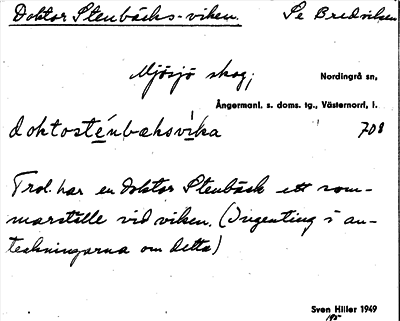 Doktor Stenbäcks-viken. Se Bredviken
Mjösjö skog; Nordingrå sn,
Ångermanl. s. doms. tg., Västernorrl. l.
doktosténbæksvika 708
Trol. har en Doktor Stenbäck ett som-
marställe vid viken. (Ingenting i an-
teckningarna om detta)
Sven Hiller 1949